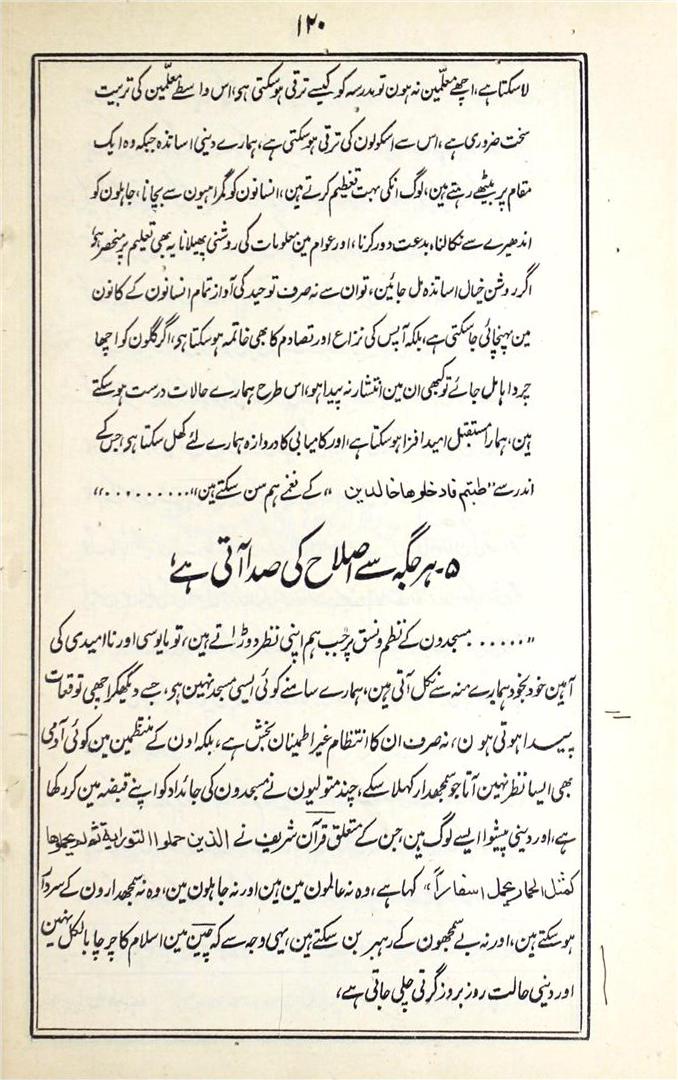 ۱۲۰
لا سکتا ہے، اچھے معلّمین نہ ہون تو مدرسہ کو کیسے ترقی ہو سکتی ہی، اس واسطے معلّمین کی تربیت
سخت ضروری ہے، اس سے اسکولون کی ترقی ہو سکتی ہے، ہمارے دینی اساتذہ جبکہ وہ ایک
مقام پر بیٹھے رہتے ہین، لوگ انکی بہت تعظیم کرتے ہین، انسانون کو گمراہیون سے بچانا، جاہلون کو
اندھیرے سے نکالنا، بدعت دور کرنا، اور عوام مین معلومات کی روشنی پھیلانا یہ بھی تعلیم پر منحصر ہی،
اگر روشن خیال اساتذہ مل جائین، تو ان سے نہ صرف توحید کی آواز تمام انسانون کے کانون
مین پہنچائی جا سکتی ہے، بلکہ آپس کی نزاع اور تصادم کا بھی خاتمہ ہو سکتا ہی، اگر گلون کو اچھا
چرواہا مل جائے تو کبھی ان مین انتشار نہ پیدا ہو، اس طرح ہمارے حالات درست ہو سکتے
ہین، ہمارا مستقبل امید افزا ہو سکتا ہے، اور کامیابی کا دروازہ ہمارے لئے کھل سکتا ہی جس کے
اندر سے "طبتم فادخلوھا خالدین" کے نغمے ہم سن سکتے ہین"..........."
۵۔ ہر جگہ سے اصلاح کی صدا آتی ہے،
"...... مسجدون کے نظم و نسق پر جب ہم اپنی نظر دوڑاتے ہین، تو مایوسی اور نا امیدی کی
آہین خود بخود ہمارے منہ سے نکل آتی ہین، ہمارے سامنے کوئی ایسی مسجد نہین ہی، جسے دیکھکر اچھی توقعات
پیدا ہوتی ہون، نہ صرف ان کا انتظام غیر اطمینان بخش ہے، بلکہ اون کے منتظمین مین کوئی آدمی
بھی ایسا نظر نہین آتا جو سمجھدار کہلا سکے، چند متولیون نے مسجدون کی جائداد کو اپنے قبضہ مین کر رکھا
ہے، اور دینی پیشوا ایسے لوگ ہین، جن کے متعلق قرآن شریف نے الذین حملوا التوراية ثم لم یحملوھا
کمثل الحمار یحمل اسفاراً" کہا ہے، وہ نہ عالمون مین ہین اور نہ جاہلون مین، وہ نہ سمجھدارون کے سردار
ہو سکتے ہین، اور نہ بے سمجھون کے رہبر بن سکتے ہین، یہی وجہ سے کہ چین مین اسلام کا چرچا بالکل نہین
اور دینی حالت روز بروز گرتی چلی جاتی ہے،